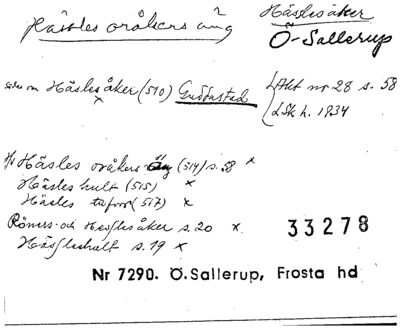 Hässles oråkers äng
Hässlesåker
Ö-Sallerup
som Häslesåker (510) Guddastad
LAkt nr 28 s. 58
LSk h. 1934
Häsles oråkers äng (514) s. 58 x
Häsles hult (515) x
Häsles (517) x
Röners- och Hessles åker s. 20 x.
Hässleshult s. 19 x
33278
Nr 7290. Ö.Sallerup, Frosta hd